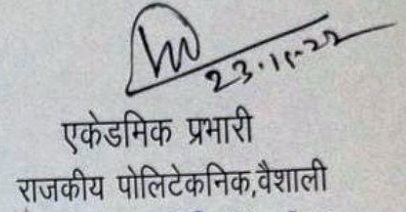 23.11.22
एकेडमिक प्रभारी
राजकीय पोलिटेकनिक,वैशाली